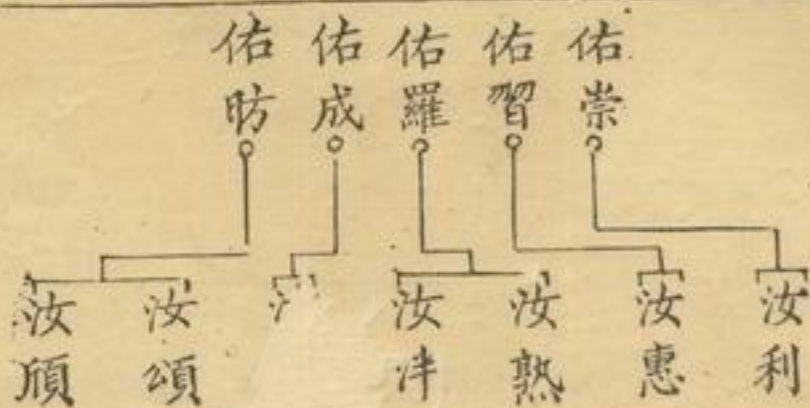 佑崇
佑習
佑羅
佑成
佑昉
汝利
汝惠
汝熟
汝汼
汝頌
汝頎